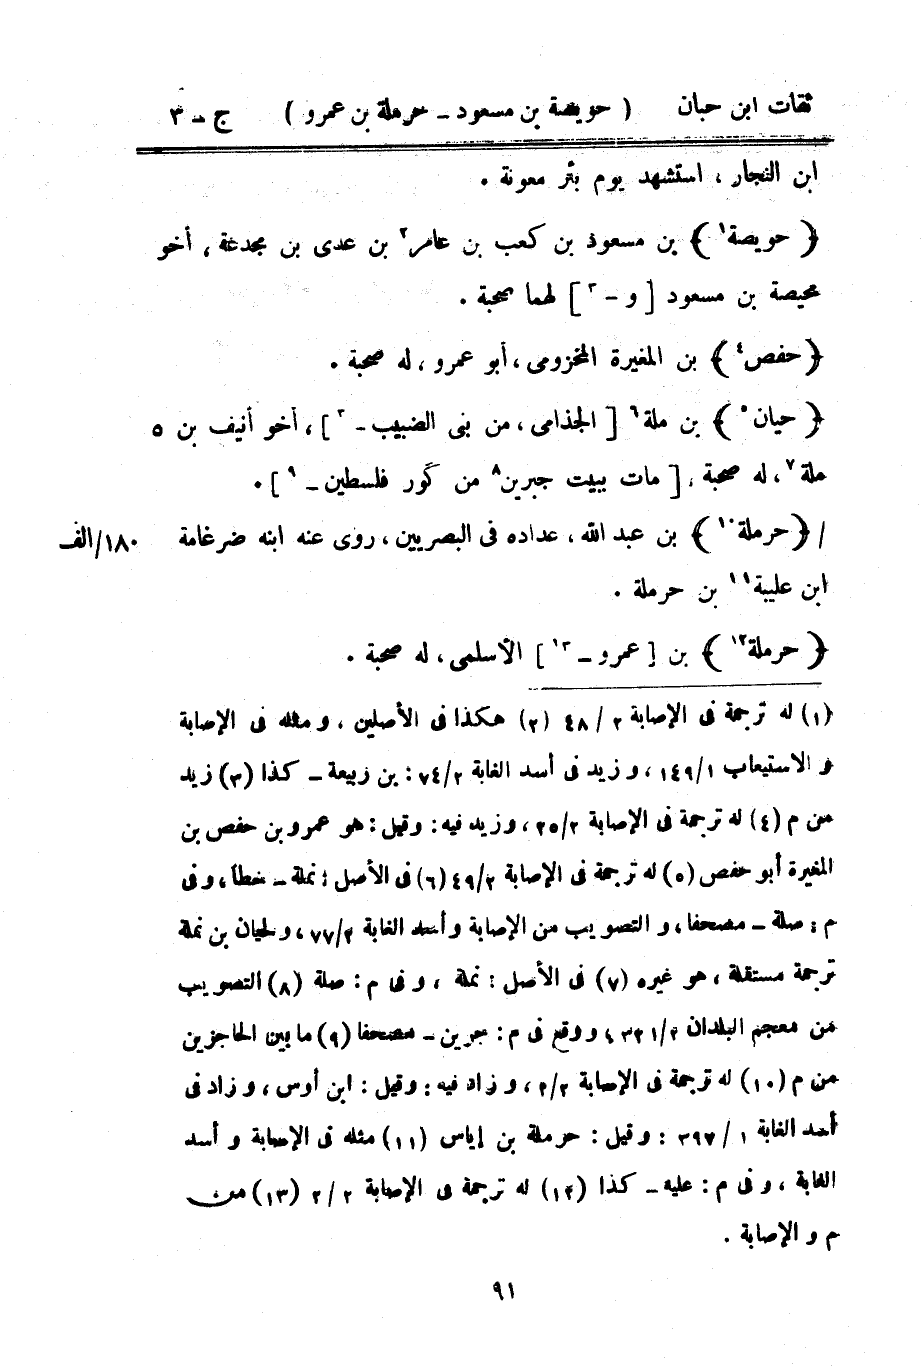 ثقات ابن حبان ( حويصة بن مسعود - حرملة بن عمرو ) ج - ٣
ابن النجار ، استشهد يوم بئر معونة .
﴿ حويصة١ ﴾ بن مسعود بن كعب بن عامر٢ بن عدى بن مجدعة ، أخو
محيصة بن مسعود [ و -٣ ] لهما صحبة .
﴿ حفص٤ ﴾ بن المغيرة المخزومى ، أبو عمرو ، له صحبة .
﴿ حيان٥ ﴾ بن ملة٦ [ الجذامى ، من بنى الضبيب -٣ ] ، أخو أنيف بن ٥
ملة٧ ، له صحبة ، [ مات ببيت جبرين٨ من كُور فلسطين -٩ ] .
/ ﴿ حرملة١٠ ﴾ بن عبد الله ، عداده فى البصريين ، روى عنه ابنه ضرغامة ١٨٠/الف
ابن عليبة١١ بن حرملة .
﴿ حرملة١٢ ﴾ بن [ عمرو -١٣ ] الأسلمى ، له صحبة .
(١) له ترجمة فى الإصابة ٢ / ٤٨ (٢) هكذا فى الأصلين ، و مثله فى الإصابة
و الاستيعاب ١٤٩/١ ، و زيد فى أسد الغابة ٧٤/٢ : بن ربيعة - كذا (٣) زيد
من م (٤) له ترجمة فى الإصابة ٢٥/٢ ، و زيد فيه : وقيل : هو عمرو بن حفص بن
المغيرة أبو حفص (٥) له ترجمة فى الإصابة ٤٩/٢ (٦) فى الأصل : نملة - خطأ ، و فى
م : صلة - مصحفا ، و التصويب من الإصابة و أسد الغابة ٧٧/٢ ، و لحيان بن نملة
ترجمة مستقلة ، هو غيره (٧) فى الأصل : نملة ، و فى م : صلة (٨) التصويب
من معجم البلدان ٣٢١/٢ ، و وقع فى م : حرين - مصحفا (٩) ما بين الحاجزين
من م (١٠) له ترجمة فى الإصابة ٢/٢ ، و زاد فيه : وقيل : ابن أوس ، و زاد فى
أسد الغابة ١ / ٣٩٧ : وقيل : حرملة بن إياس (١١) مثله فى الإصابة و أسد
الغابة ، و فى م : عليه - كذا (١٢) له ترجمة فى الإصابة ٢ / ٢ (١٣) من
م و الإصابة .
٩١